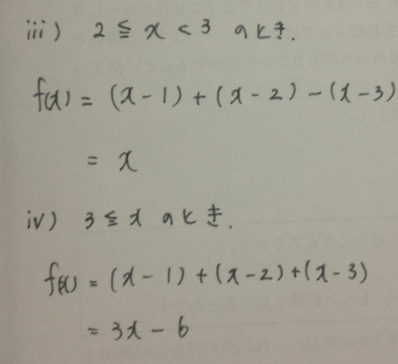 iii) 2 ≦ x < 3 のとき.
f(x) = (x-1)+(x-2)-(x-3)
= x
iv) 3 ≦ x のとき.
f(x) = (x-1)+(x-2)+(x-3)
= 3x-6